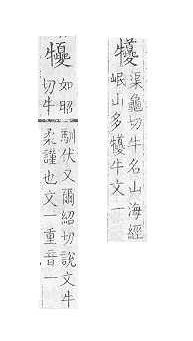 犪
渠龜切牛名山海經
岷山多犪牛文一
㹛
如昭
切牛
馴伏又爾紹切說文牛
柔謹也文一重音一